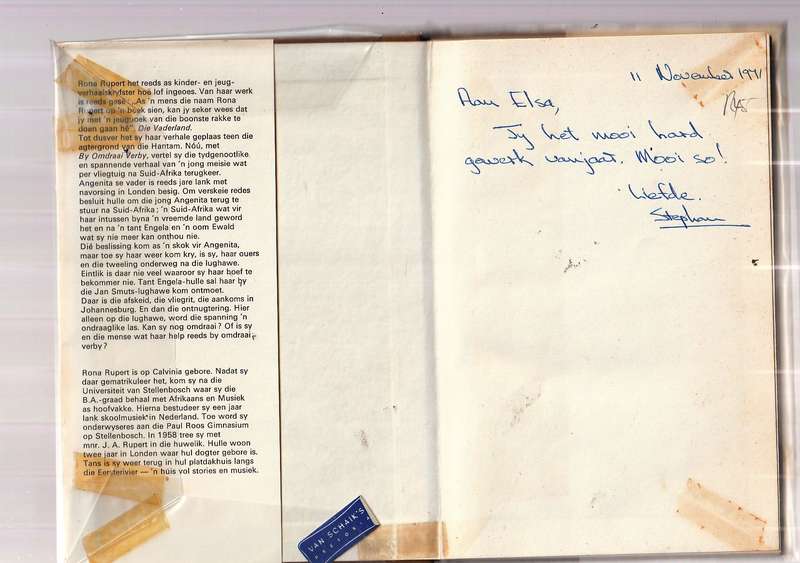 Rona Rupert het reeds as kinder- en jeug-
verhaalskryfster hoë lof ingeoes. Van haar werk
is reeds gesê: „As 'n mens die naam Rona
Rupert op 'n boek sien, kan jy seker wees dat
jy met 'n jeugboek van die boonste rakke te
doen gaan hê". Die Vaderland.
Tot dusver het sy haar verhale geplaas teen die
agtergrond van die Hantam. Nóú, met
By Omdraai Verby, vertel sy die tydgenootlike
en spannende verhaal van 'n jong meisie wat
per vliegtuig na Suid-Afrika terugkeer.
Angenita se vader is reeds jare lank met
navorsing in Londen besig. Om verskeie redes
besluit hulle om die jong Angenita terug te
stuur na Suid-Afrika; 'n Suid-Afrika wat vir
haar intussen byna 'n vreemde land geword
het en na 'n tant Engela en 'n oom Ewald
wat sy nie meer kan onthou nie.
Dié beslissing kom as 'n skok vir Angenita,
maar toe sy haar weer kom kry, is sy, haar ouers
en die tweeling onderweg na die lughawe.
Eintlik is daar nie veel waaroor sy haar hoef te
bekommer nie. Tant Engela-hulle sal haar by
die Jan Smuts-lughawe kom ontmoet.
Daar is die afskeid, die vliegrit, die aankoms in
Johannesburg. En dan die ontnugtering. Hier
alleen op die lughawe, word die spanning 'n
ondraaglike las. Kan sy nog omdraai? Of is sy
en die mense wat haar help reeds by omdraai
verby?
Rona Rupert is op Calvinia gebore. Nadat sy
daar gematrikuleer het, kom sy na die
Universiteit van Stellenbosch waar sy die
B.A.-graad behaal met Afrikaans en Musiek
as hoofvakke. Hierna bestudeer sy een jaar
lank skoolmusiek in Nederland. Toe word sy
onderwyseres aan die Paul Roos Gimnasium
op Stellenbosch. In 1958 tree sy met
mnr. J. A. Rupert in die huwelik. Hulle woon
twee jaar in Londen waar hul dogter gebore is.
Tans is sy weer terug in hul platdakhuis langs
die Eersterivier — 'n huis vol stories en musiek.
VAN SCHAIK'S
PRETORIA
11 November 1971
Aan Elsa,
Jy het mooi hard
gewerk vanjaar. Mooi so!
Liefde.
Stephan